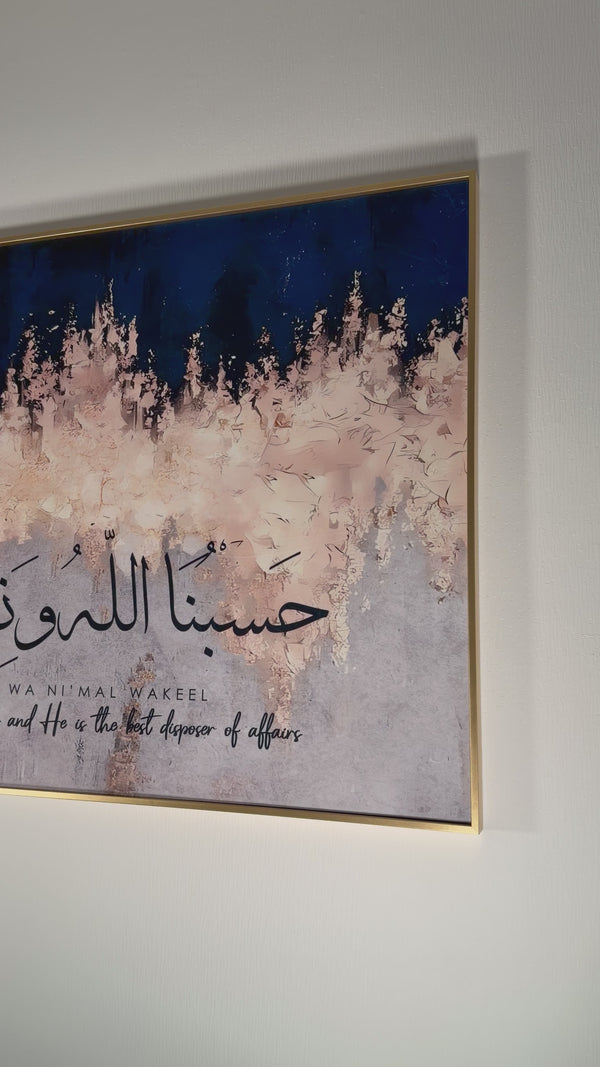 حَسْبُنَا اللَّهُ وَنِ
WA NI'MAL WAKEEL
and He is the best disposer of affairs